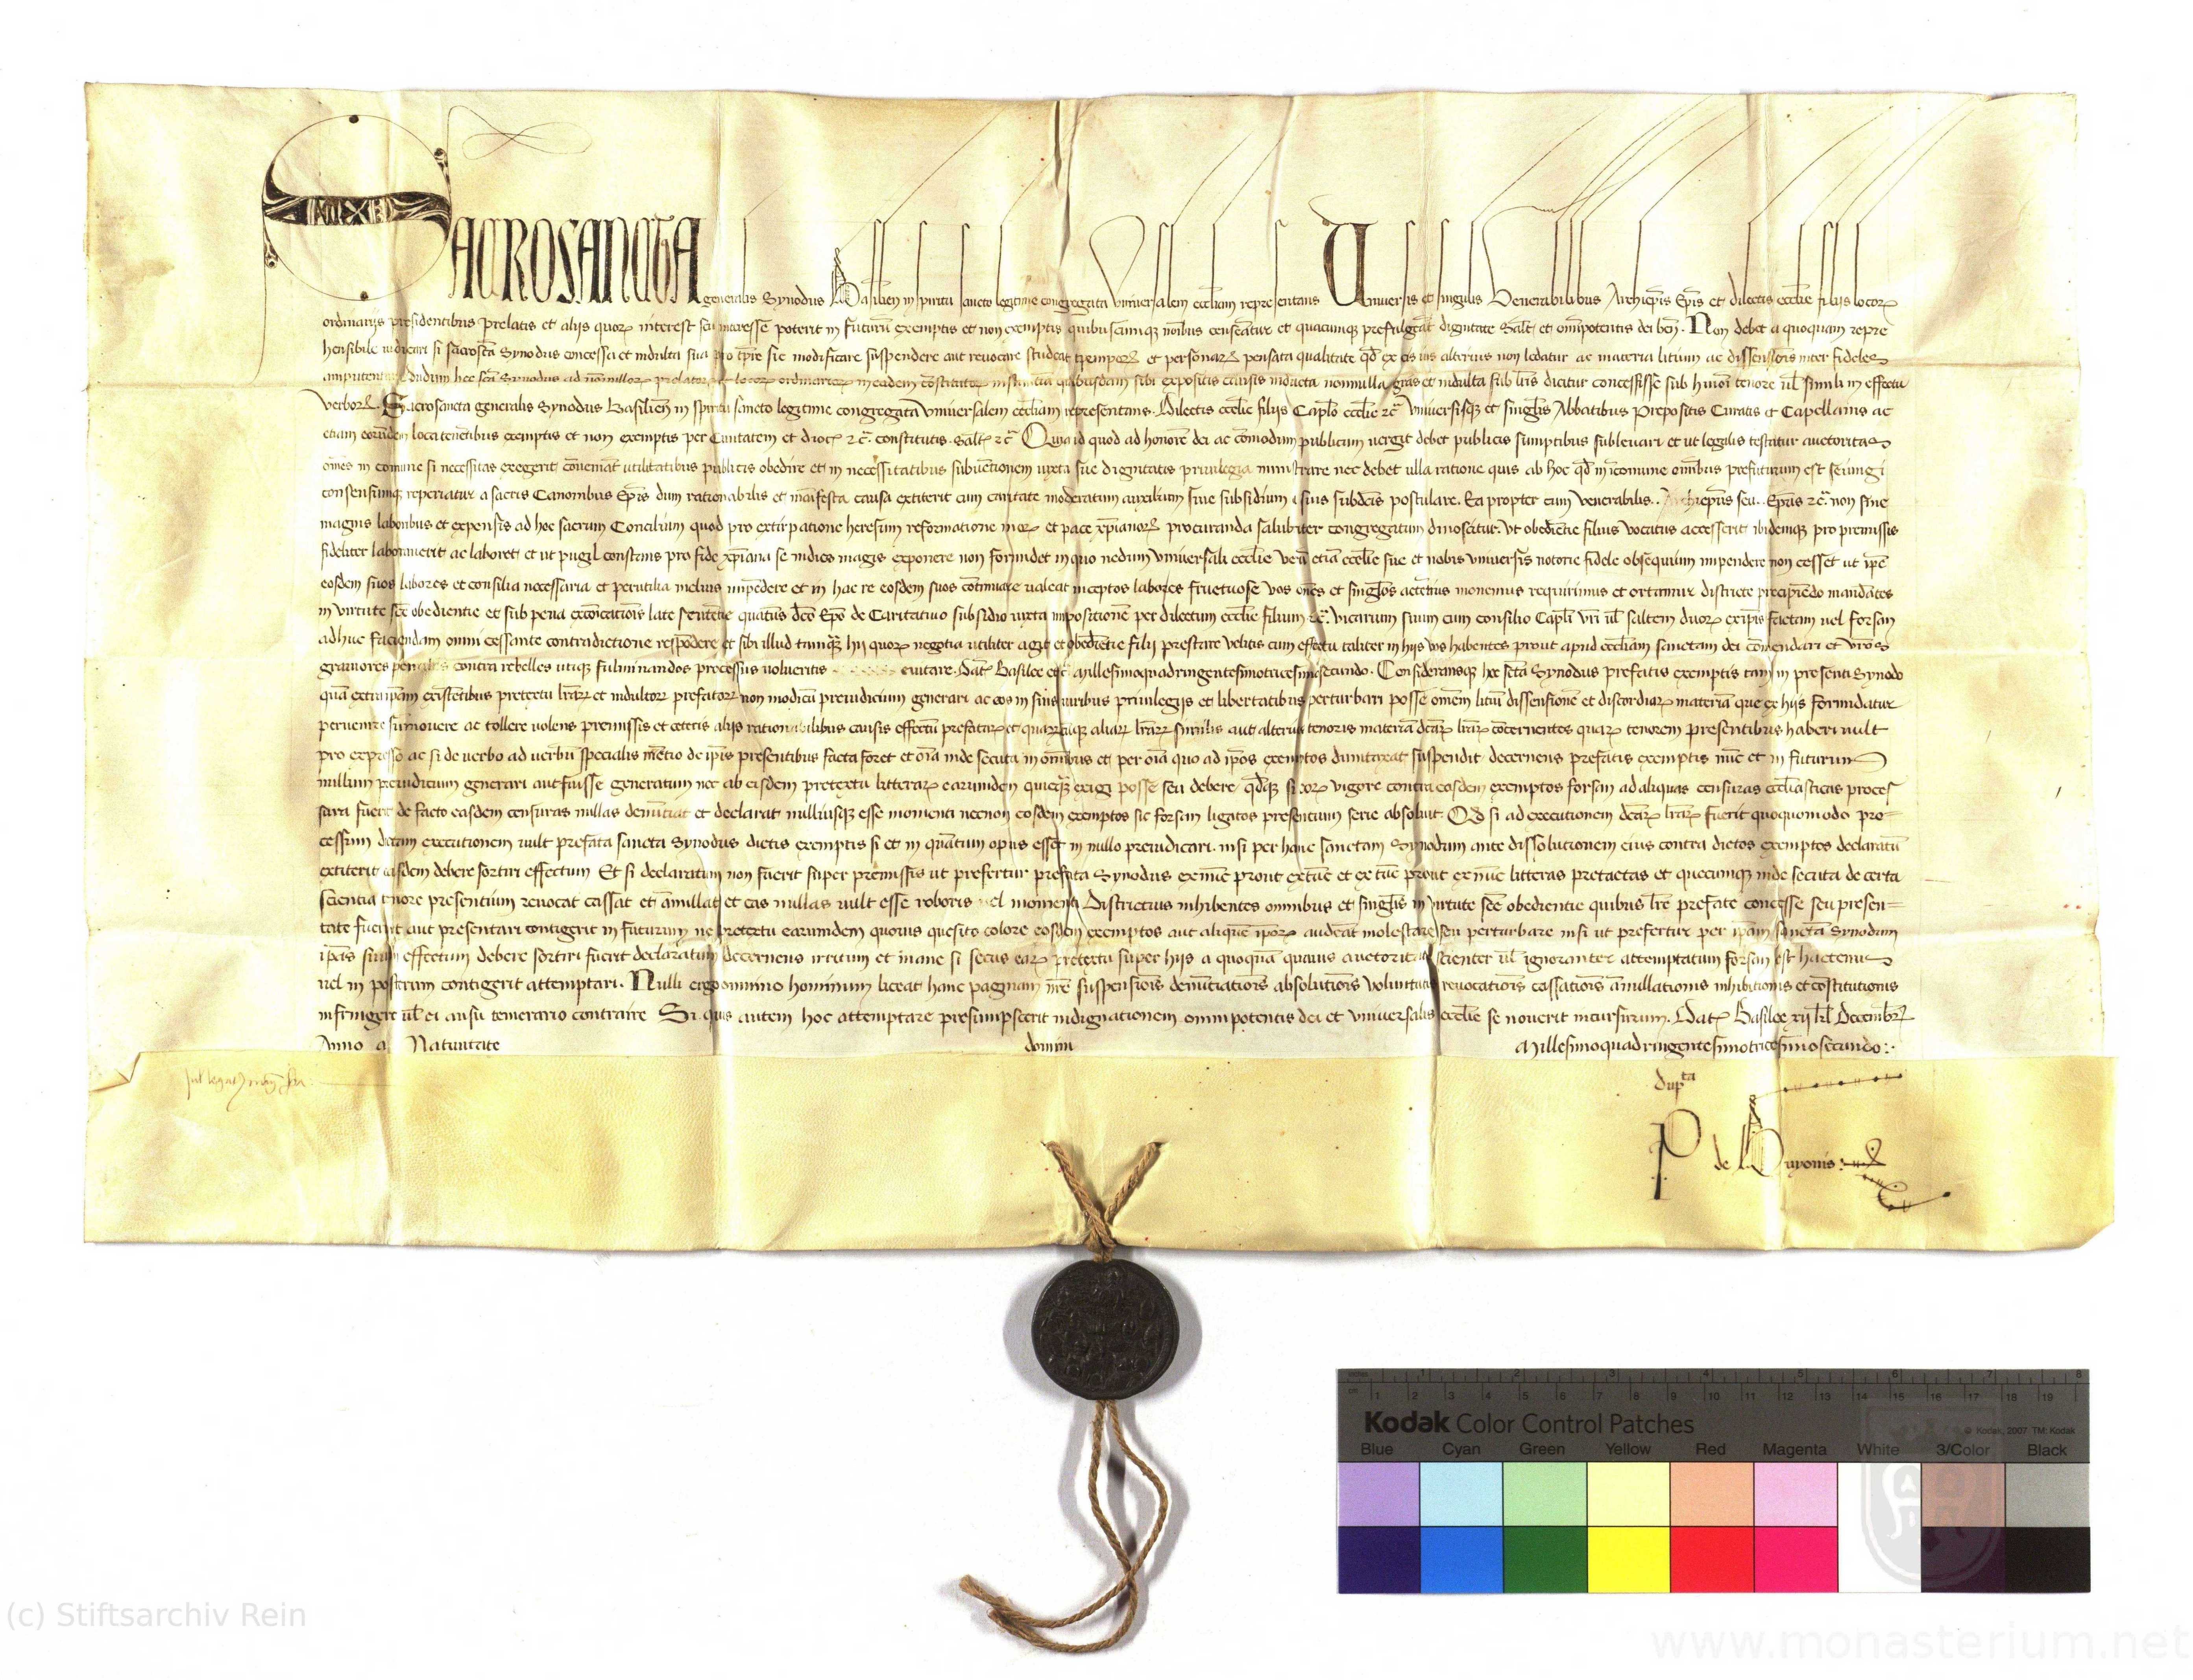 SACROSANCTA generalis Synodus Basilien̄ in spiritu sancto legitime congregata Vniuersalem eccl̄iam representans Uniuersis et singulis Venerabilibus Archiep̄is Ep̄is et dilectis ecclesie filijs locoꝝ
ordinarijs presidentibus prelatis et alijs quoꝝ interest seu interesse poterit in futurū exemptis et non exemptis quibuscumqꝫ nōibus censeātur et quacumqꝫ prefulgeāt dignitate Sal̄t et om̄ipotentis dei ben̄. Non debet a quoquam repre
hensibile iudicari si sacros̄ta Synodus concessa et indulta sua pro tp̄re sic modificare suspendere aut reuocare studeat tempoꝝ et personaꝝ pensata qualitate qd̄ ex eis ius alterius non ledatur ac materia litium ac dissensiōis inter fideles
dudum hec sc̄a Synodus ad nōnulloꝝ prelatoꝝ locoꝝ ordinarioꝝ in eadem cōstitutoꝝ instantia quibusdam sibi expositis causis inducta nonnulla gr̄as et indulta sub l̄ris dicitur concessisse sub huiōi tenore ul̄ simili in effectu
verboꝝ. Sacrosancta generalis Synodus Basilien̄ in spiritu sancto legitime congregata Vniuersalem eccl̄iam representans. Dilectis eccl̄ie filijs Capl̄o eccl̄ie ⁊c̄ Vniuersisqꝫ et singl̄is Abbatibus Prepositis Curatis et Capellanis ac
etiam eorūdem locatenētibus exemptis et non exemptis per Ciuitatem et dioc̄ ⁊c̄. constitutis. Sal̄t ⁊c̄ Quia id quod ad honorē dei ac cōmodum publicum uergit debet publicis sumptibus subleuari et ut legalis testatur auctoritas
om̄es in comune si necessitas exegerit conueniāt utilitatibus publicis obedire et in necessitatibus subuētionem iuxta sue dignitatis priuilegia ministrare nec debet ulla ratione quis ab hoc qd̄ in cōmune om̄ibus profuturum est seiungi
consensumqꝫ reperiatur a sacris Canonibus Ep̄is dum rationabilis et māifesta causa extiterit cum caritate moderatum auxilium siue subsidium a suis subdc̄is postulare. Ea propter cum Venerabilis .. Archiep̄us seu .. Ep̄us ⁊c̄. non sine
magnis laboribus et expensis ad hoc sacrum Concilium quod pro extirpatione heresum reformatione moꝝ et pace xp̄ianoꝝ procuranda salubriter congregatum dinoscitur. Vt obediētie filius vocatus accesserit ibidemqꝫ pro premissis
fideliter laborauerit ac laboret et ut pugil constans pro fide xp̄iana se indies magis exponere non formidet in quo nedum Vniuersali eccl̄ie verū etiā eccl̄ie sue et nobis Vniuersis notorie fidele obsequium impendere non cesset ut ip̄e
eosdem suos labores et consilia necessaria et perutilia melius impēdere et in hac re eosdem suos cōtinuare ualeat inceptos labores fructuose vos om̄es et singl̄os monemus requirimus et ortamur districte precipiēdo mandātes
in virtute sc̄e obedientie et sub pena exc̄oicatiōis late sentētie quatin̄s dc̄o Ep̄o de Caritatiuo subsidio iuxta impositionē per dilectum eccl̄ie filium ⁊c̄. vicarium suum cum consilio Capl̄i vr̄i ul̄ saltem duoꝝ ex ip̄is factam uel forsan
adhuc faciendam omni cessante contradictione respōdere et sibi illud tamqꝫ hij quoꝝ negotia utiliter agit et obediētie filij prestare velitis cum effectu taliter in hijs vos habentes prout apud eccl̄iam sanctam dei cōmendari et vr̄os
grauiores contra rebelles utiqꝫ fulminandos processus uolueritis euitare. Dat̄ Basilee ⁊c̄ Millesimoquadringentesimotricesimosecundo. Consideransqꝫ hec sc̄ta Synodus prefatis exemptis tam in presenti Synodo
quā extra ip̄am existētibus pretextu l̄raꝝ et indultoꝝ prefatoꝝ non modicū preiudicium generari ac eos in suis iuribus priuilegijs et libertatibus perturbari posse om̄em litiū dissensionē et discordiaꝝ materiā que ex hijs formidatur
peruenire summouere ac tollere uolens premissis et ceteris alijs rationabilibus causis effectū prefataꝝ et quaꝝcūqꝫ aliaꝝ l̄raꝝ similis aut alterius tenoris materiā dc̄aꝝ l̄raꝝ cōcernentes quaꝝ tenorem presentibus haberi uult
pro expresso ac si de verbo ad uerbū specialis mētio de ip̄is presentibus facta foret et oīa inde secuta in om̄ibus et per oīa quo ad ip̄os exemptos dumtaxat suspendit decernens prefatis exemptis nūc et in futurum
nullum preiudicium generari aut fuisse generatum nec ab eisdem pretextu litteraꝝ earumdem quicqꝫ exigi posse seu debere qd̄qꝫ si eoꝝ vigore contra eosdem exemptos forsan ad aliquas censuras eccl̄iasticas proces
sum fuerit de facto easdem censuras nullas denūtiat et declarat nulliusqꝫ esse momenti necnon eosdem exemptos sic forsan ligatos presentium serie absoluit. Qd̄ si ad executionem dc̄aꝝ l̄raꝝ fuerit quoquomodo pro=
cessum dictam executionem uult prefata sancta Synodus dictis exemptis si et in quātum opus esset in nullo preiudicari. nisi per hanc sanctam Synodum ante dissolutionem eius contra dictos exemptos declaratū
extiterit easdem debere sortiri effectum Et si declaratum non fuerit super premissis ut prefertur prefata Synodus ex nūc prout ex tūc et ex tūc prout ex nūc litteras pretactas et quecumqꝫ inde secuta de certa
scientia tenore presentium reuocat cassat et ānullat et eas nullas uult esse roboris uel momenti Districtius inhibentes omnibus et singl̄is in virtute sc̄e obedientie quibus l̄re prefate concesse seu presen=
tate fuerint aut presentari contigerit in futurum ne pretextu earumdem quouis quesito colore eosdem exemptos aut aliquē ip̄oꝝ audeāt molestare seu perturbare nisi ut prefertur per ip̄am sanctā Synodum
ip̄as suum effectum debere sortiri fuerit declaratum decernens irritum et inane si secus eaꝝ pretextu super hijs a quoquā quauis auctoritate scienter ul̄ ignoranter attemptatum forsan est hactenus
uel in posterum contigerit attemptari. Nulli ergo omnino hominum liceat hanc paginam nr̄e suspensiōis denūtiatiōis absolutiōis voluntatis reuocatiōis cassatiōis ānullationis inhibitionis et cōstitutionis
infringere ul̄ ei ausu temerario contraire Si quis autem hoc attemptare presumpserit indignationem omnipotentis dei et vniuersalis eccl̄ie se nouerit incursurum. Dat̄ Basilee xij kl̄ Decembꝝ
Anno a Natiuitate domini Millesimoquadringentesimotricesimosecundo:.
dup̄ta
P de
Kodak Color Control Patches
© Kodak, 2007 TM: Kodak
Blue Cyan Green Yellow Red Magenta White 3/Color Black
(c) Stiftsarchiv Rein
www.monasterium.net